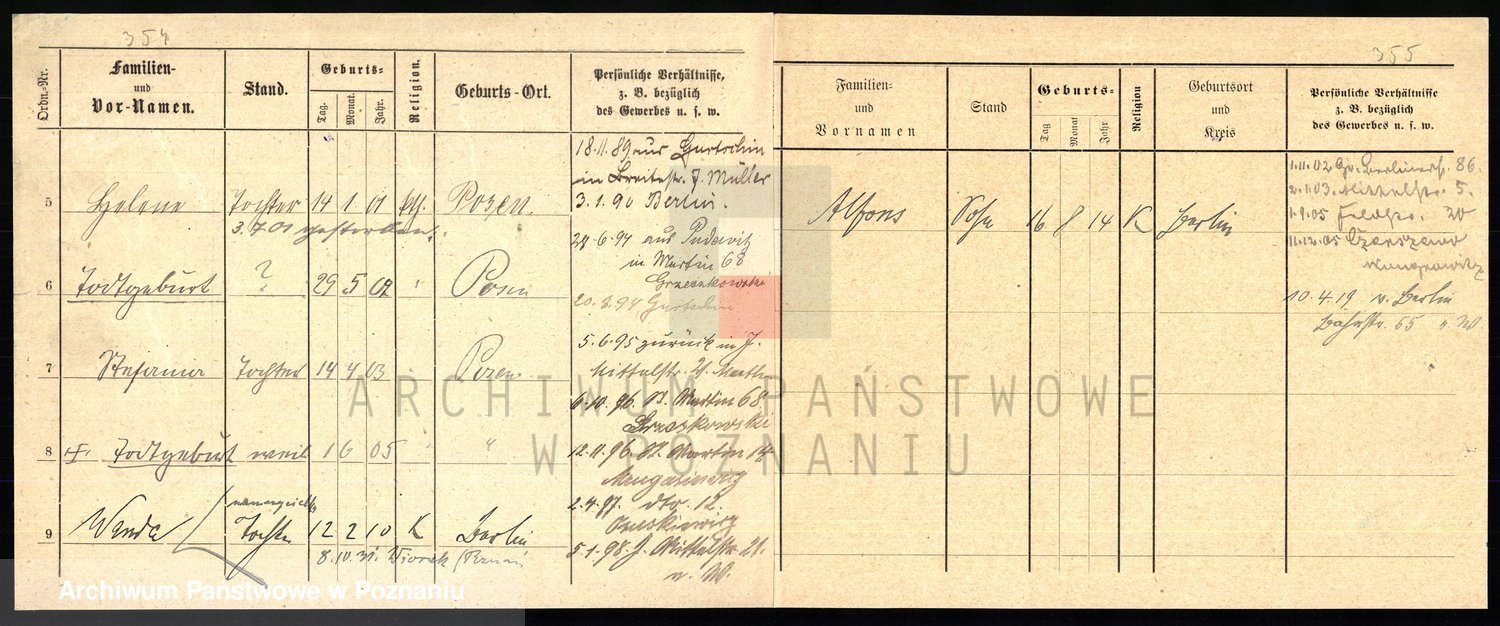 354
Ordn.-Nr.
Familien-
und
Vor-Namen.
Stand.
Geburts-
Tag.
Monat.
Jahr.
Religion.
Geburts-Ort.
Persönliche Verhältnisse,
z. B. bezüglich
des Gewerbes u. s. w.
5 Helene Tochter 14 1 01 Posen.
3.7.01 gestorben.
6 Todtgeburt ? 29 5 02 " Posen
7 Stefania Tochter 14 4 03 Posen
8 Todtgeburt weibl 1 6 05 " "
9 Wanda Tochter 12 2 10 K Berlin
8.IV.31.
18.11.89 aus Gurtschin
in Breitestr. J. Müller
3.1.90 Berlin.
6.94 aus Pudewitz
in Martin 68
Grzeszkowska
20.8.94 Gurtschin
5.6.95 zurück in J.
Mittelstr.
6.10.96 Martin 68
12.11.96 St. Martin 14
2.4.97. dto. 12.
5.1.98. J. Mittelstr 21.
n. W.
355
Familien-
und
Vornamen
Stand
Geburts-
Tag
Monat
Jahr
Religion
Geburtsort
und
Kreis
Persönliche Verhältnisse
z. B. bezüglich
des Gewerbes u. s. w.
Alfons Sohn 16 8 14 K Berlin
1.11.02 Gr. Berlinerstr. 86.
2.1.03. Mittelstr. 5.
1.9.05 Feldstr. 20
11.12.05
10.4.19 v. Berlin
Bahnstr. 55 " W
ARCHIWUM PAŃSTWOWE
W POZNANIU
Archiwum Państwowe w Poznaniu